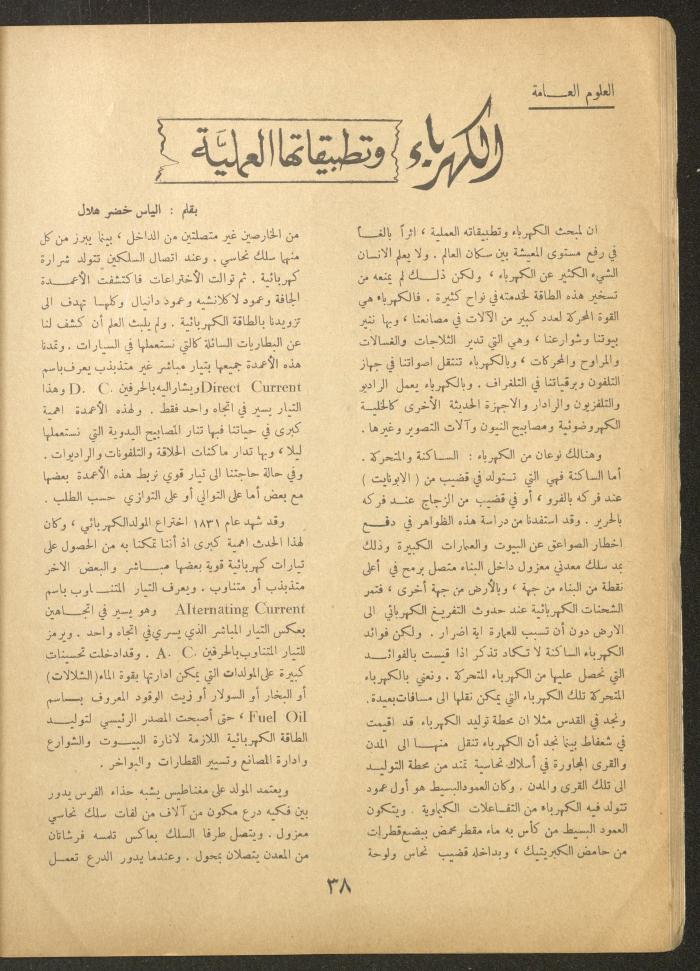 العلوم العـــامة
الكهرباء وتطبيقاتها العمليَّة
بقلم : الياس خضر هلال
ان لمبحث الكهرباء وتطبيقاته العملية ، اثراً بالغــاً
في رفع مستوى المعيشة بين سكان العالم . ولا يعلم الانسان
الشيء الكثير عن الكهرباء ، ولكن ذلــك لم يمنعه من
تسخير هذه الطاقة لخدمته في نواح كثيرة . فالكهرباء هي
القوة المحركة لعدد كبير من الآلات في مصانعنا ، وبها ننير
بيوتنا وشوارعنا ، وهي التي تدير الثلاجات والغسالات
والمراوح والمحركات ، وبالكهرباء تنتقل اصواتنا في جهاز
التلفون وبرقياتنا في التلغراف . وبالكهرباء يعمل الراديو
والتلفزيون والرادار والاجهزة الحديثة الأخرى كالخلية
الكهروضوئية ومصابيح النيون وآلات التصوير وغيرها .
وهنالك نوعان من الكهرباء : الساكنة والمتحركة .
أما الساكنة فهي التي تستولد في قضيب من ( الابونايت )
عند فركه بالفرو ، أو في قضيب من الزجاج عنــد فركه
بالحرير . وقد استفدنا من دراسة هذه الظواهر في دفــع
اخطار الصواعق عن البيوت والعمارات الكبيرة وذلك
بمد سلك معدني معزول داخل البناء متصل برمح في أعلى
نقطة من البناء من جهة ، وبالأرض من جهة أخرى ، فتمر
الشحنات الكهربائية عند حدوث التفريغ الكهربائي الى
الارض دون أن تسبب للعمارة اية اضرار . ولكن فوائد
الكهرباء الساكنة لا تكاد تذكر اذا قيست بالفوائــد
التي نحصل عليها من الكهرباء المتحركة . ونعني بالكهرباء
المتحركة تلك الكهرباء التي يمكن نقلها الى مسافات بعيدة .
ونجد في القدس مثلا ان محطة توليد الكهرباء قد اقيمت
في شعفاط بينما نجد أن الكهرباء تنقل منهــا الى المدن
والقرى المجاورة في أسلاك نحاسية تمتد من محطة التوليــد
الى تلك القرى والمدن . وكان العمود البسيط هو أول عمود
تتولد فيه الكهرباء من التفــاعلات الكيماوية . ويتكون
العمود البسيط من كأس به ماء مقطر محمض ببضع قطرات
من حامض الكبريتيك ، وبداخله قضيب نحاس ولوحة
من الخارصين غير متصلتين من الداخل ، بينما يبرز من كل
منها سلك نحاسي . وعند اتصال السلكين تتولد شرارة
كهربائية . ثم توالت الأختراعات فاكتشفت الأعمــدة
الجافة وعمود لاكلانشيه وعمود دانيال وكلهـا تهدف الى
تزويدنا بالطاقة الكهربائية . ولم يلبث العلم أن كشف لنا
عن البطاريات السائلة كالتي نستعملها في السيارات . وتمدنا
هذه الأعمدة جميعها بتيار مباشر غير متذبذب يعرف باسم
Direct Current ويشار اليه بالحرفين D. C. وهذا
التيار يسير في اتجاه واحد فقط . ولهذه الأعمدة اهمية
كبرى في حياتنا فبها تنار المصابيح اليدوية التي نستعملها
ليلا ، وبها تدار ماكنات الحلاقة والتلفونات والراديوات .
وفي حالة حاجتنا الى تيار قوي نربط هذه الأعمدة بعضها
مع بعض أما على التوالي أو على التوازي حسب الطلب .
وقد شهد عام ١٨٣١ اختراع المولد الكهربائي ، وكان
لهذا الحدث اهمية كبرى اذ أننا تمكنا به من الحصول على
تيارات كهربائية قوية بعضها مبــاشر والبعض الاخر
متذبذب أو متناوب . ويعرف التيار المتنــاوب باسم
Alternating Current وهو يسير في اتجــاهين
بعكس التيار المباشر الذي يسري في اتجاه واحد . ويرمز
للتيار المتناوب بالحرفين A. C. . وقد ادخلت تحسينات
كبيرة على المولدات التي يمكن ادارتها بقوة الماء (الشلالات)
أو البخار أو السولار أو زيت الوقود المعروف باســم
Fuel Oil ، حتى أصبحت المصدر الرئيسي لتوليــد
الطاقة الكهربائية اللازمة لانارة البيــوت والشوارع
وادارة المصانع وتسيير القطارات والبواخر .
ويعتمد المولد على مغناطيس يشبه حذاء الفرس يدور
بين فكيه درع مكون من آلاف من لفات سلك نحاسي
معزول . ويتصل طرفا السلك بعاكس تلمسه فرشاتان
من المعدن يتصلان بمحول . وعندما يدور الدرع تعمــل
٣٨